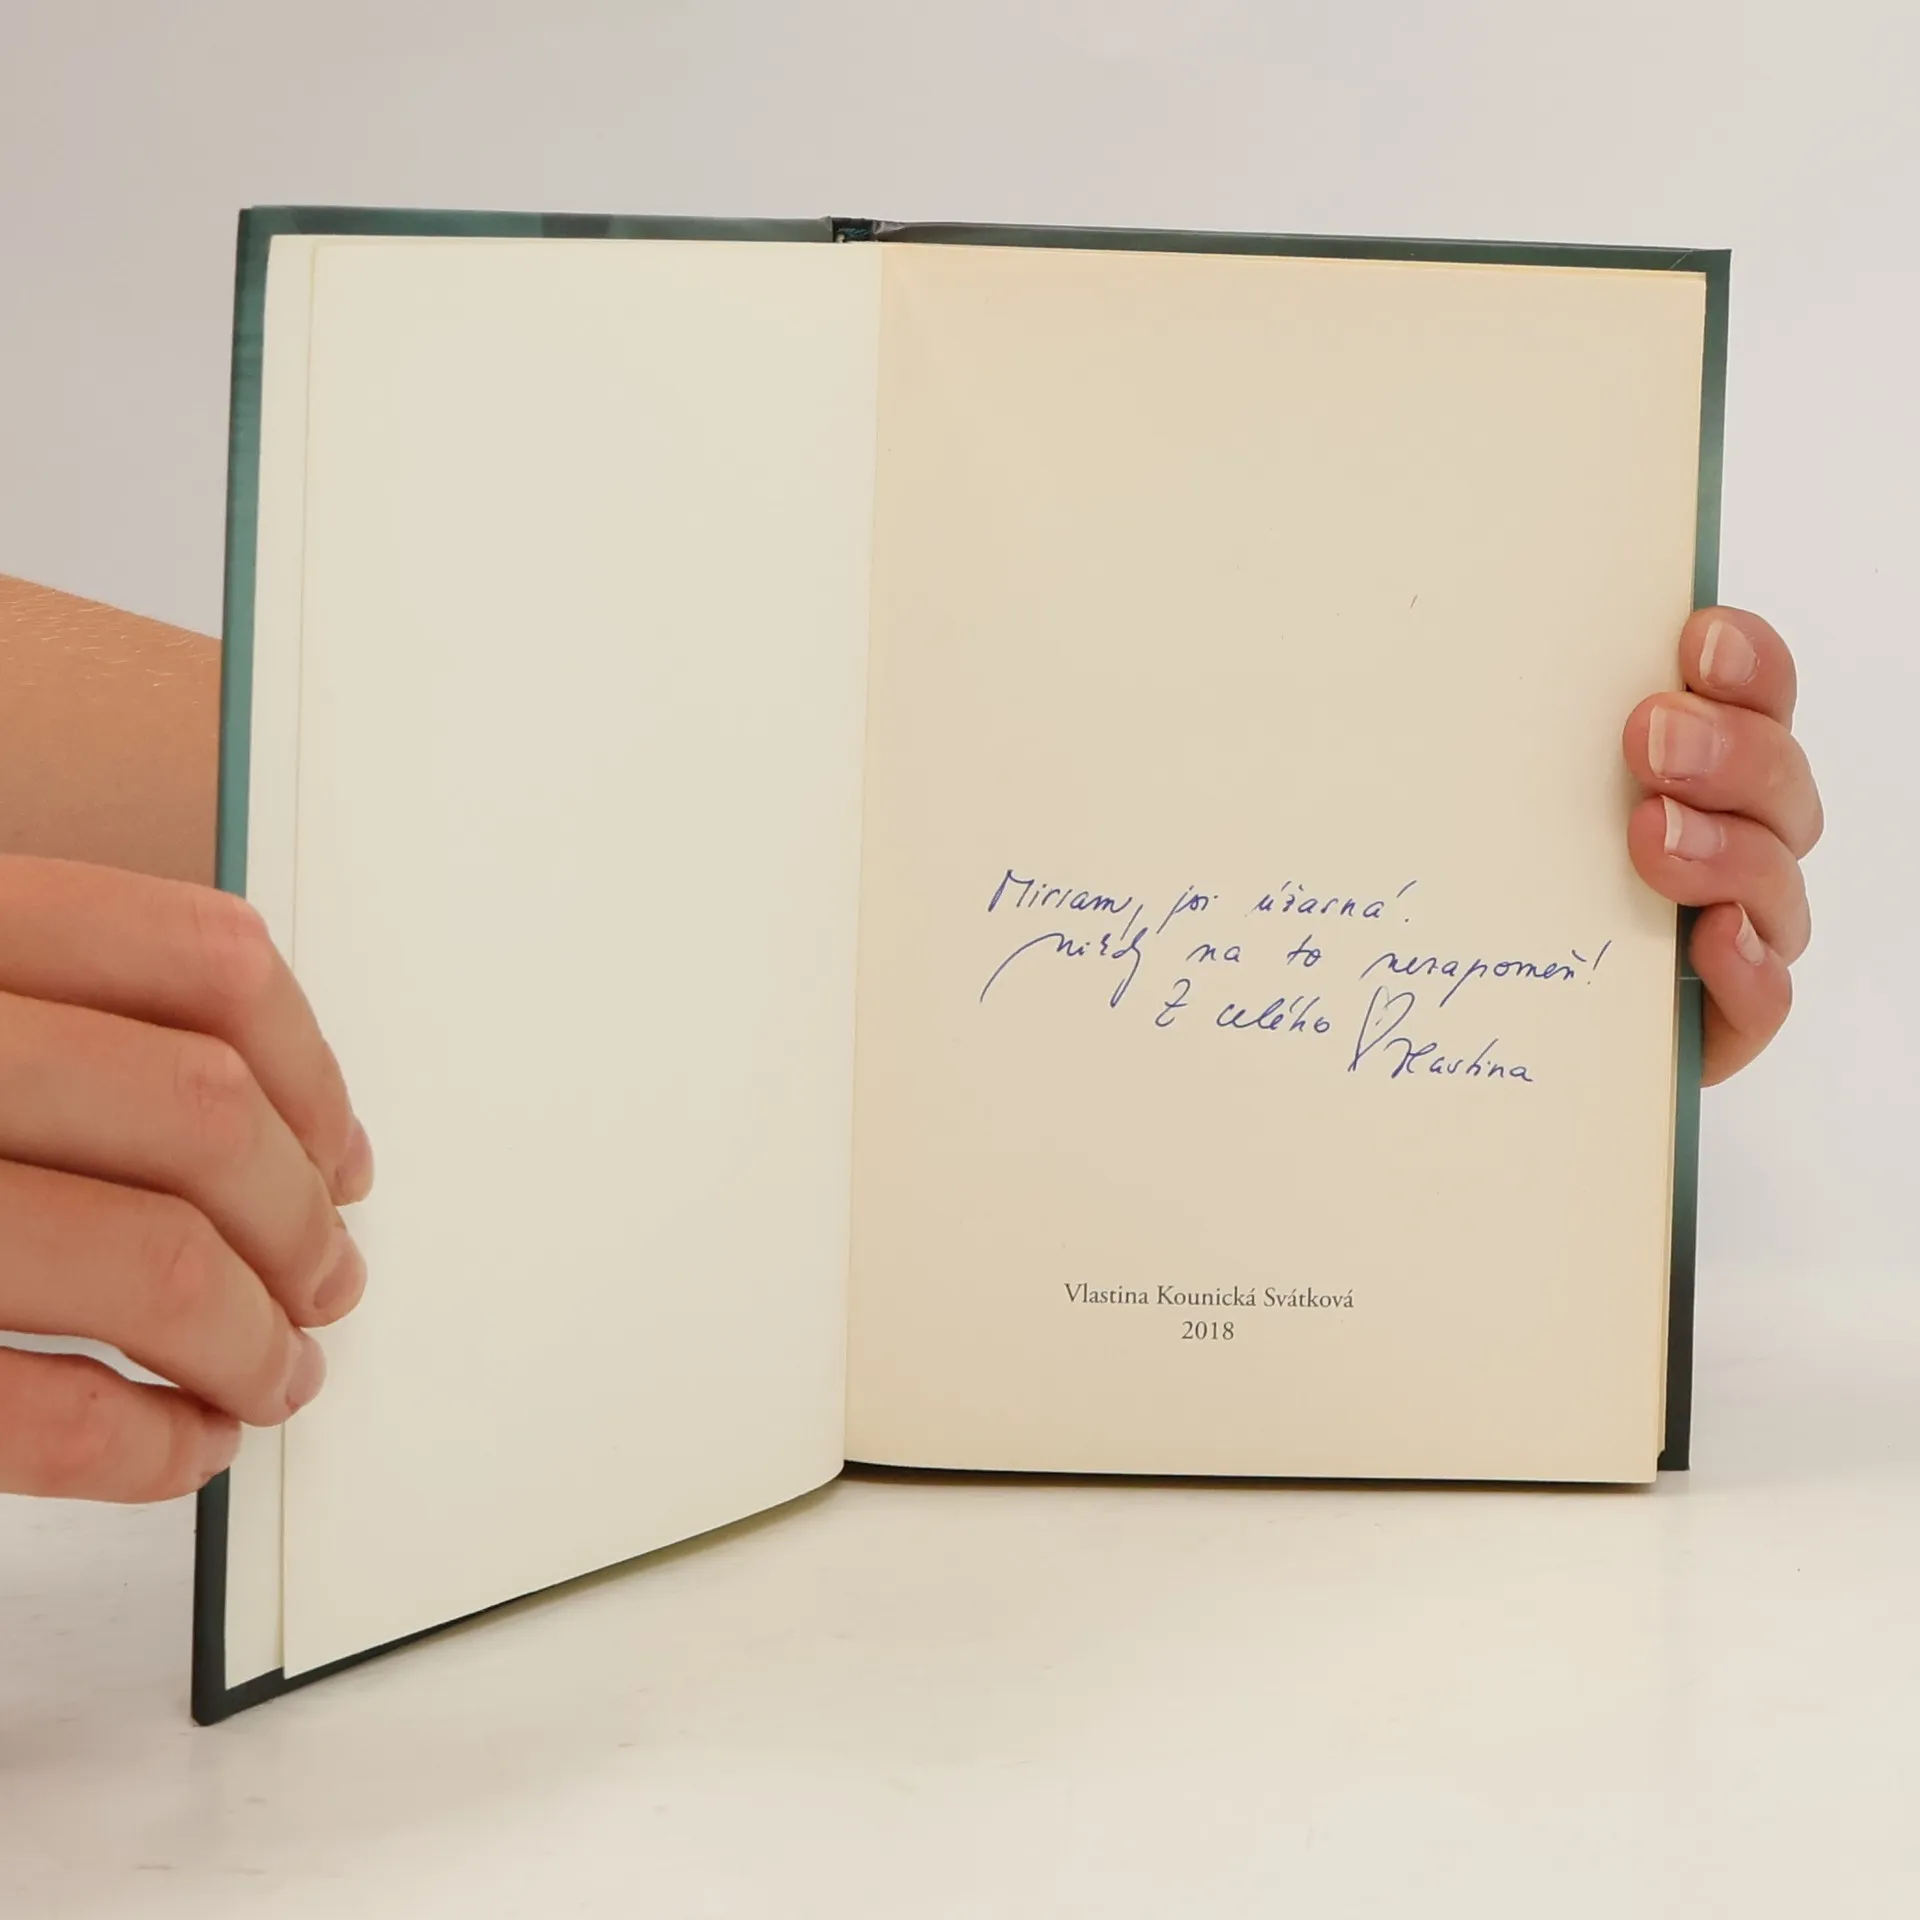 Miriam, jsi úžasná!
nikdy na to nezapomeň!
Z celého ♡ Vlastina
Vlastina Kounická Svátková
2018